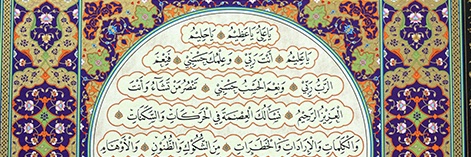 يَا عَلِيُّ يَا عَظِيْمُ يَا حَلِيْمُ
يَا عَلِيْمُ أَنْتَ رَبِّيْ وَعِلْمُكَ حَسْبِيْ فَنِعْمَ
الرَّبُّ رَبِّيْ وَنِعْمَ الْحَسْبُ حَسْبِيْ تَنْصُرُ مَنْ تَشَآءُ وَأَنْتَ
الْعَزِيْزُ الرَّحِيْمُ نَسْأَلُكَ الْعِصْمَةَ فِي الْحَرَكَاتِ وَالسَّكَنَاتِ
وَالْكَلِمَاتِ وَالْإِرَادَاتِ وَالْخَطَرَاتِ مِنَ الشُّكُوْكِ وَالظُّنُوْنِ وَالْأَوْهَامِ